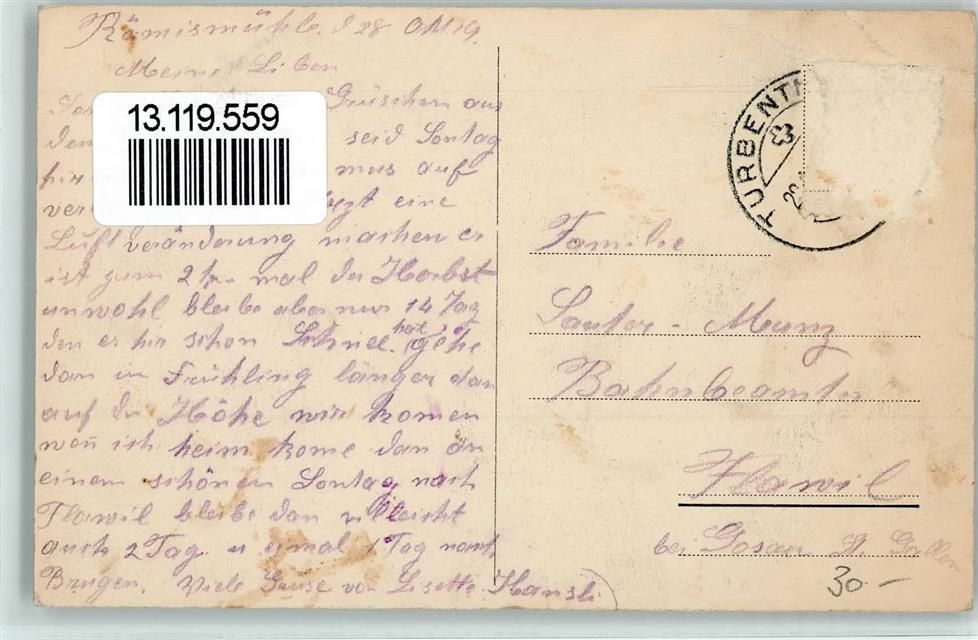 Rämismühle. d 28 Okt 19.
Meine Liben
Grüschen aus
den seid Sontag
hir mus auf
ver eine
Luft veränderung machen er
ist zum 2 mal der Herbst
unwohl bleibe aber nur 14 Tag
den er hir schon Schnee hat gehe
dan im Frühling länger dan
auf die Höhe wir komen
wen ich heim kome dan an
einem schönen Sontag nach
Flawil bleibe dan villeicht
auch 2 Tag. u eimal 1 Tag nach
Brugen. Viele Grüse von Lisette Hansli
13.119.559
TURBENTH
Familie
Sauter - Munz
Bahnbeamter
Flawil
bei Gosau St. Gallen
30.-